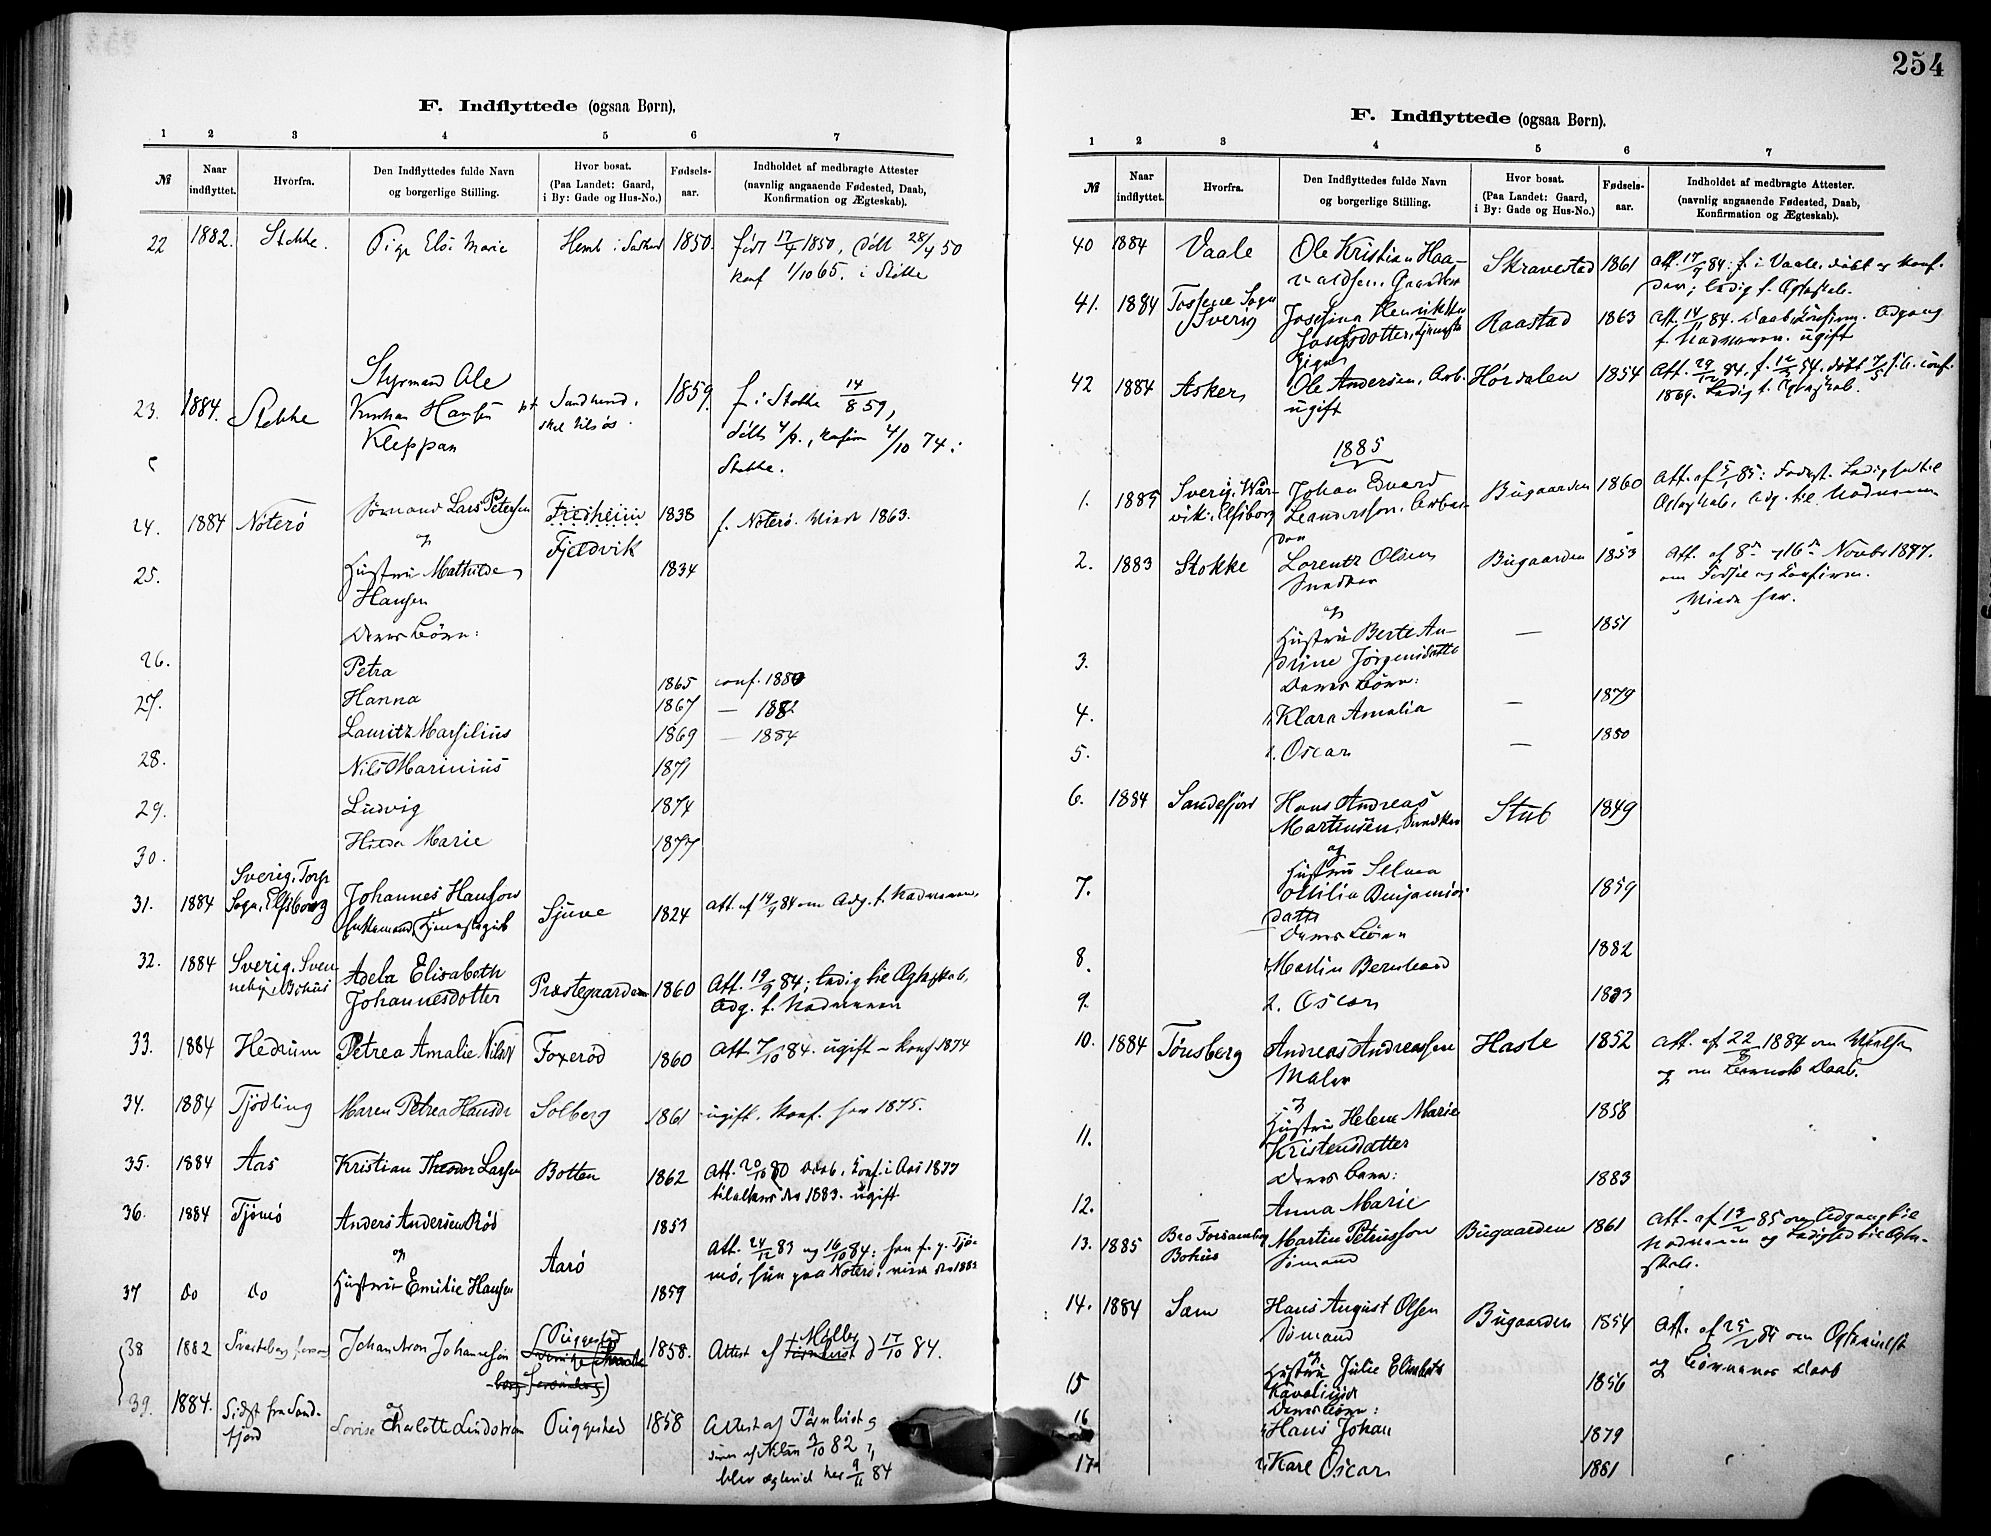 254
F. Indflyttede (ogsaa Børn),
1 2 3 4 5 6 7
№ Naar indflyttet. Hvorfra. Den Indflyttedes fulde Navn og borgerlige Stilling. Hvor bosat. (Paa Landet: Gaard, i By: Gade og Hus-No.) Fødsels-aar. Indholdet af medbragte Attester (navnlig angaaende Fødested, Daab, Konfirmation og Ægteskab).
22 1882. Stokke. Pige Elsi Marie 1850. født 17/4 1850, døbt 28/4 50
konf 1/10 65. i Stokke
Styrmand Ole
23. 1884. Stokke Kristian Hansen 1859. f. i Stokke 14/8 59,
Kleppan
4/10 74 i
Stokke.
24. 1884 Noterø Sømand Lars Petersen Fredheim 1838 f. Noterø. Viede 1863.
og Fjeldvik
25. Hustru Mathilde 1834
Hansen
Deres Børn:
26. Petra 1865 conf. 1880
27. Hanna 1867 — 1882
Lauritz Marsilius 1869 — 1884
28. Nils Marinius 1871
29. Ludvig 1874
30. Hilda Marie 1877
Sverig. Torp
31. 1884 Sogn, Elfsborg Johannes Hansson Sjuve 1824 Att. af 14/9 84 om Adg. t. Nadveren.
32. 1884 Sverig. Svenneby i Bohus Adela Elisabeth Johannesdotter Præstegaarden 1860 Att. 19/9 84; ledig til Ægteskab,
Adg. t. Nadveren
33. 1884 Hedrum Petrea Amalie Foxerød 1860 Att. 7/10 84. ugift – konf 1874
34. 1884 Tjødling Maren Petrea Hansdr Solberg 1861 ugift. Konf. her 1875.
35. 1884 Aas Kristian Theodor Larsen Botten 1862 Att. 20/10 80 Daab, Konf. i Aas 1877
1883. ugift
36. 1884 Tjømø Anders Andersen Rød 1853
og Aarø Att. 24/12 83 og 16/10 84: han f. p. Tjømø, hun paa Noterø;
37 do do Hustru Emilie Hansen 1859
38 1882 Johan Aron Johannesson Puggestad 1858. Attest af Møller d 17/10 84.
39. 1884. Sidst fra Sandefjord og Lovise Charlotte Lindstrøm Puggestad 1858 Attest af Törnkvist
3/10 82
blev ægteviet her 9/11 84
F. Indflyttede (ogsaa Børn).
1 2 3 4 5 6 7
№ Naar indflyttet. Hvorfra. Den Indflyttedes fulde Navn og borgerlige Stilling. Hvor bosat. (Paa Landet: Gaard, i By: Gade og Hus-No.) Fødsels-aar. Indholdet af medbragte Attester. (navnlig angaaende Fødested, Daab, Konfirmation og Ægteskab).
40 1884 Vaale Ole Kristian Haavaldsen. Skravestad 1861 Att. 17/9 84: f. i Vaale, døbt og konf.
der; ledig t. Ægteskab.
41. 1884 Tossene Sogn Sverig Josefina Henriketta Josefsdotter, Tjenestepige Raastad 1863 Att. 14/11 84. Daab, Konfirm. Adgang
t. Nadveren. ugift
42 1884 Asker Ole Andersen, Arb. Hørdalen 1854 Att. 29/12 84,
ugift 1869. Ledig t. Ægteskab.
1885
1. 1885 Sverig. Elfsborg Johan Edvard Leandersson, Arbeider Bugaarden 1860 Ledighed til
Ægteskab, Adg. til Nadveren
2. 1883 Stokke Lorentz Olsen Bugaarden 1853 Att. af 8de og 16de Novbr 1887.
Snedker om Fødsel og Konfirm.
og Viede her.
3. Hustru Berte Andrine Jørgensdatter — 1851
Deres Børn:
4. 1. Klara Amalia — 1879
5. 2. Oscar — 1880
6. 1884 Sandefjord Hans Andreas Martinsen, Snedker Stub 1849
og
7. Hustru Selma Otilia Benjaminsdatter 1859
Deres Børn
8. 1. Martin Bernhard 1882
9. 2. Oscar 1883
10. 1884 Tønsberg Andreas Andreassen Hasle 1852 Att. af 22/8 1884 om Vielse
Maler og om Barnets Daab.
og
11. Hustru Helene Marie Kristensdatter 1858
Deres Barn:
12. Anna Marie 1883
13. 1885 Bro Forsamling Bohus Martin Petrusson Sømand Bugaarden 1861 Att. af 13/2 85 om Adgang til
Nadveren og Ledighed til Ægteskab.
14. 1884 Sæm Hans August Olsen Bugaarden 1854
Sømand og Børnenes Daab
og
15 Hustru Julie Elisabeth 1856
Deres Børn:
16 1. Hans Johan 1879
17 2. Karl Oscar 1881